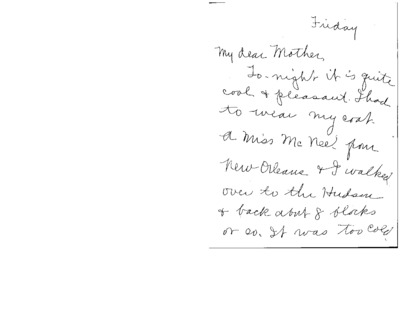 Friday
My dear Mother,
To-night it is quite
cool & pleasant. I had
to wear my coat.
A Miss McNee! from
New Orleans & I walked
over to the Hudson
& back about 8 blocks
or so. It was too cold